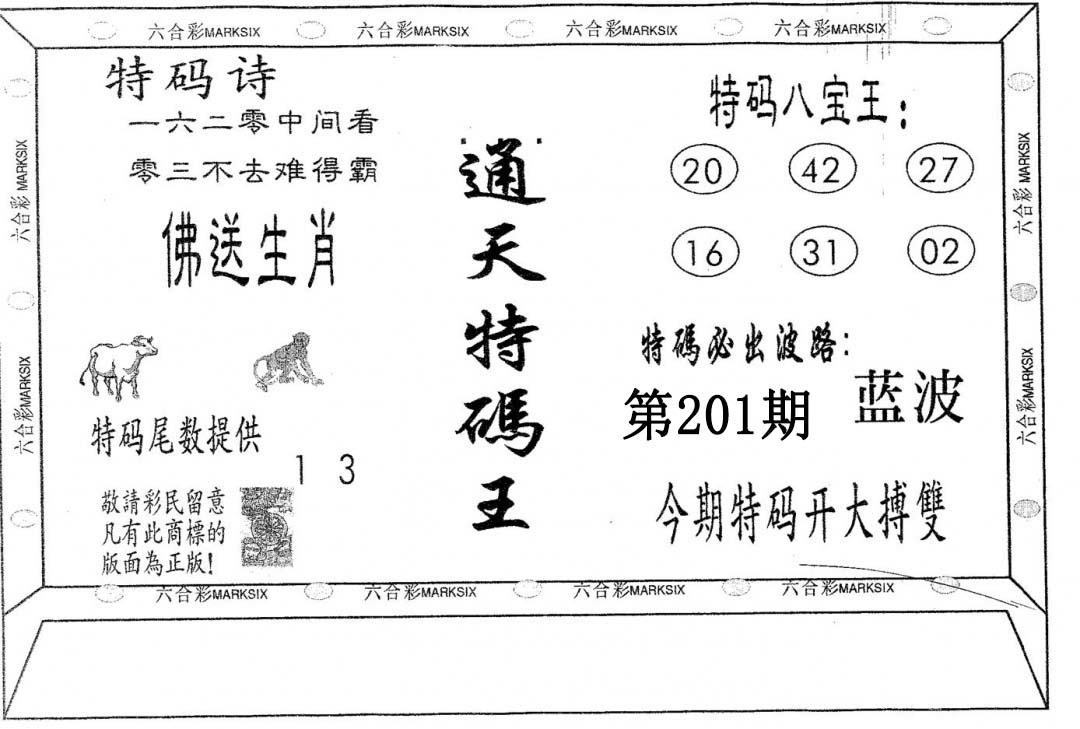 六合彩MARKSIX 六合彩MARKSIX 六合彩MARKSIX 六合彩MARKSIX
特码诗
一六二零中间看
零三不去难得霸
佛送生肖
特码尾数提供
1 3
敬請彩民留意
凡有此商標的
版面為正版!
通天特碼王
特码八宝王:
20 42 27
16 31 02
特碼必出波路:
第201期 蓝波
今期特码开大搏雙
六合彩 MARKSIX
六合彩MARKSIX
六合彩 MARKSIX
六合彩MARKSIX
六合彩MARKSIX 六合彩MARKSIX 六合彩MARKSIX 六合彩MARKSIX